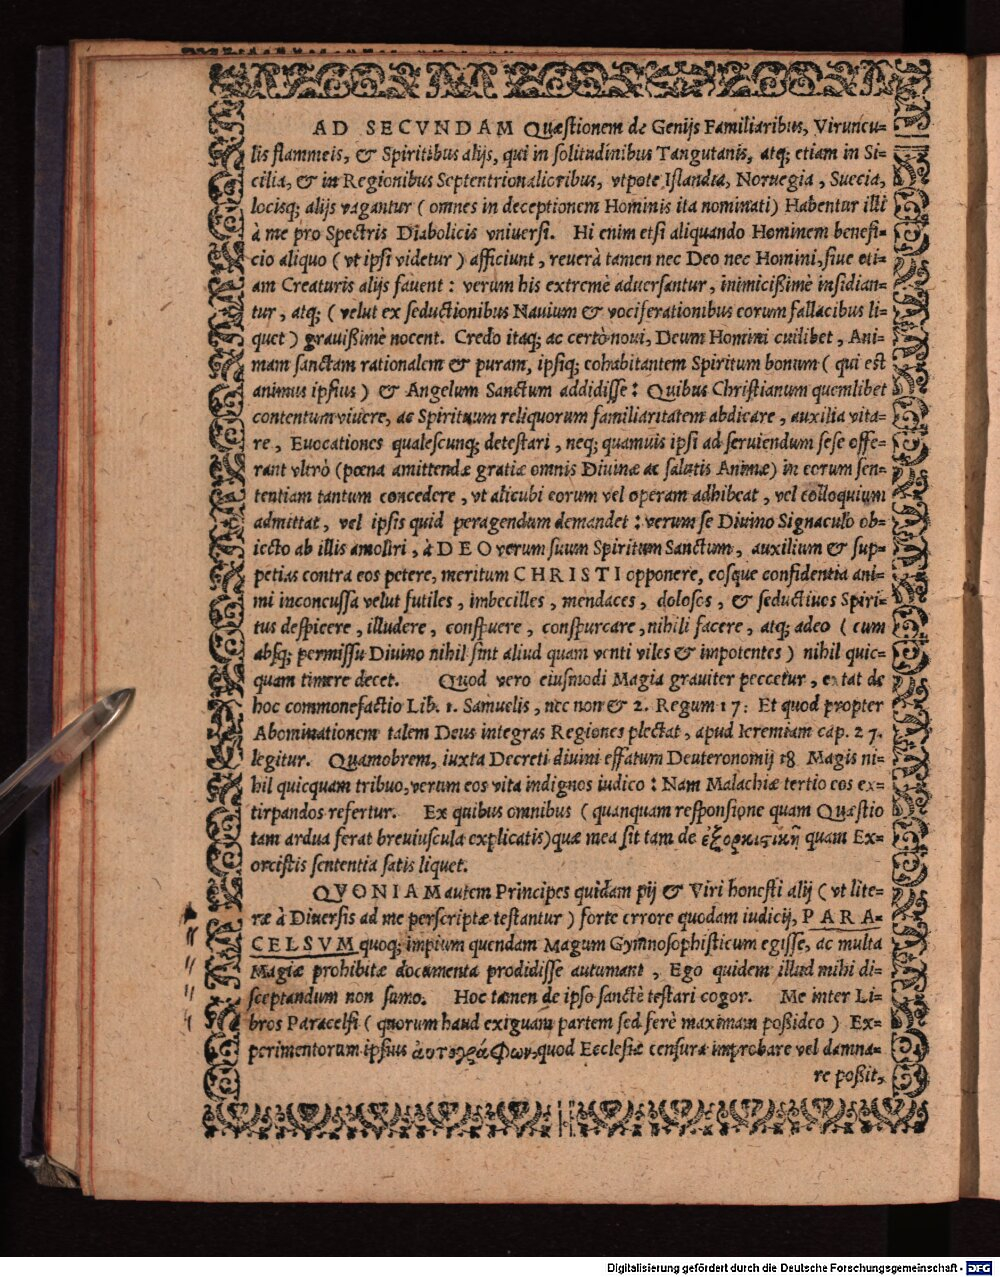 AD SECVNDAM Quæstionem de Genijs Familiaribus, Viruncu-
lis flammeis, & Spiritibus alijs, qui in solitudinibus Tangutanis, atq; etiam in Si-
cilia, & in Regionibus Septentrionalioribus, vtpote Islandia, Noruegia, Suecia,
locisq; alijs vagantur (omnes in deceptionem Hominis ita nominati) Habentur illi
à me pro Spectris Diabolicis vniuersi. Hi enim etsi aliquando Hominem benefi-
cio aliquo (vt ipsi videtur) afficiunt, reuerà tamen nec Deo nec Homini, siue eti-
am Creaturis alijs fauent: verùm his extremè aduersantur, inimicißimè insidian-
tur, atq; (velut ex seductionibus Nauium & vociferationibus eorum fallacibus li-
quet) grauißimè nocent. Credo itaq; ac certò noui, Deum Homini cuilibet, Ani-
mam sanctam rationalem & puram, ipsiq; cohabitantem Spiritum bonum (qui est
animus ipsius) & Angelum Sanctum addidisse: Quibus Christianum quemlibet
contentum viuere, ac Spirituum reliquorum familiaritatem abdicare, auxilia vita-
re, Euocationes qualescunq; detestari, neq; quamuis ipsi ad seruiendum sese offe-
rant vltrò (pœna amittendæ gratiæ omnis Diuinæ ac salutis Animæ) in eorum sen-
tentiam tantum concedere, vt alicubi eorum vel operam adhibeat, vel colloquium
admittat, vel ipsis quid peragendum demandet: verum se Diuino Signaculo ob-
iecto ab illis amoliri, à DEO verum suum Spiritum Sanctum, auxilium & sup-
petias contra eos petere, meritum CHRISTI opponere, eosque confidentia ani-
mi inconcussa velut futiles, imbecilles, mendaces, dolosos, & seductiuos Spiri-
tus despicere, illudere, conspuere, conspurcare, nihili facere, atq; adeo (cum
absq; permissu Diuino nihil sint aliud quam venti viles & impotentes) nihil quic-
quam timere decet. Quod vero eiusmodi Magia grauiter peccetur, extat de
hoc commonefactio Lib. 1. Samuelis, nec non & 2. Regum 17: Et quod propter
Abominationem talem Deus integras Regiones plectat, apud Ieremiam cap. 27.
legitur. Quamobrem, iuxta Decreti diuini effatum Deuteronomij 18 Magis ni-
hil quicquam tribuo, verum eos vita indignos iudico: Nam Malachiæ tertio eos ex-
tirpandos refertur. Ex quibus omnibus (quanquam responsione quam Quæstio
tam ardua ferat breuiuscula explicatis) quæ mea sit tam de ἐξορκιστικῇ quam Ex-
orcistis sententia satis liquet.
QVONIAM autem Principes quidam pij & Viri honesti alij (vt lite-
ræ à Diuersis ad me perscriptæ testantur) forte errore quodam iudicij, PARA-
CELSVM quoq; impium quendam Magum Gymnosophisticum egisse, ac multa
Magiæ prohibitæ documenta prodidisse autumant, Ego quidem illud mihi di-
sceptandum non sumo. Hoc tamen de ipso sanctè testari cogor. Me inter Li-
bros Paracelsi (quorum haud exiguam partem sed ferè maximam poßideo) Ex-
perimentorum ipsius ἀυτογράφων, quod Ecclesiæ censura improbare vel damna-
re poßit,
Digitalisierung gefördert durch die Deutsche Forschungsgemeinschaft - DFG